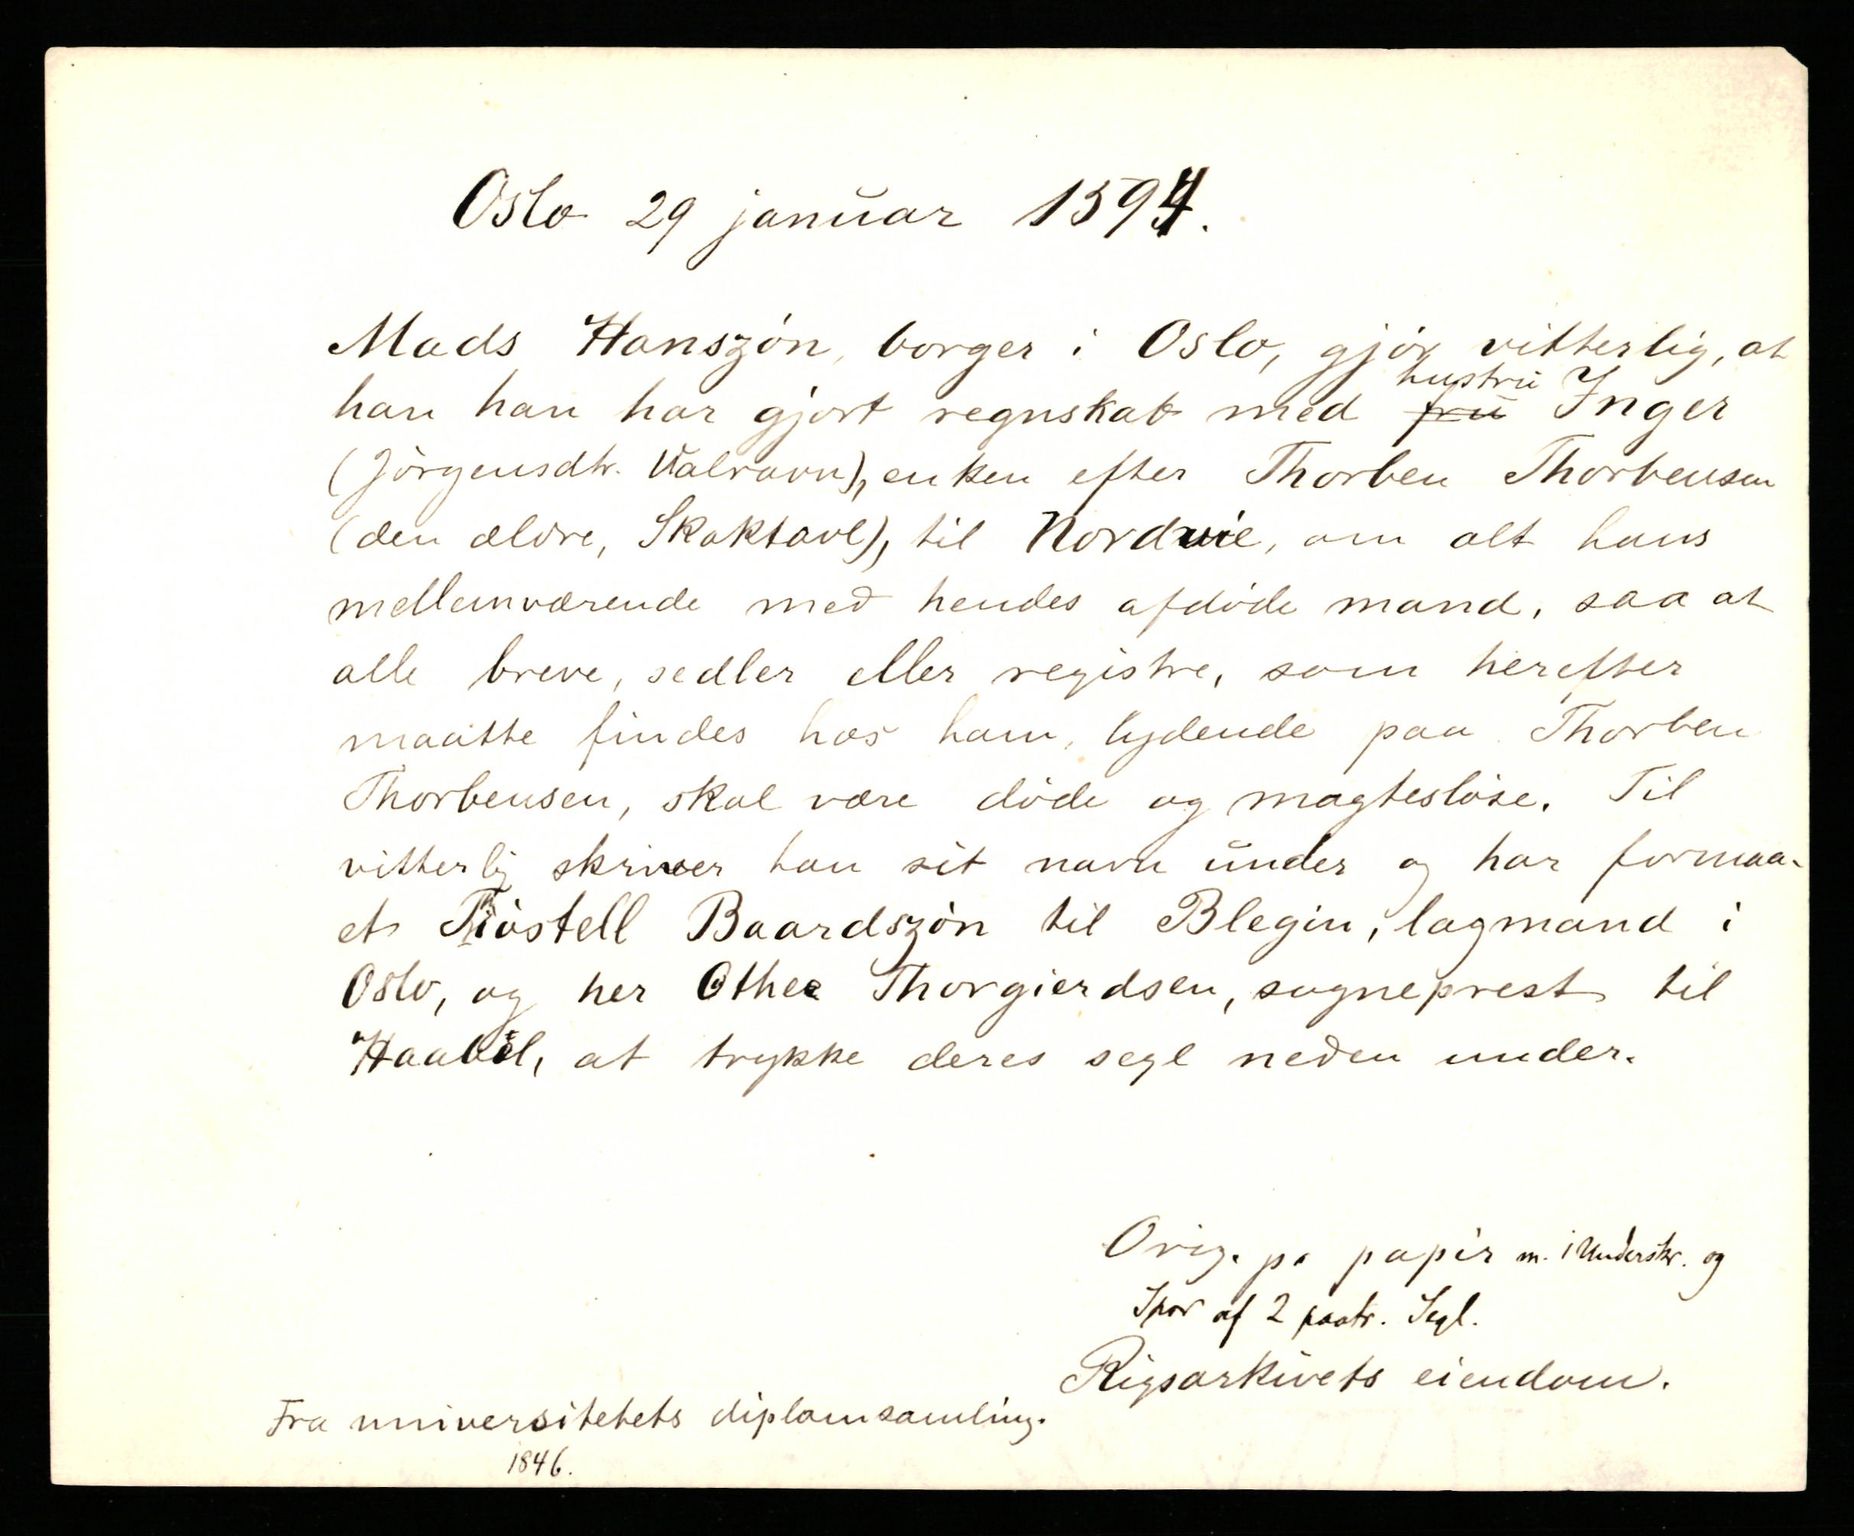 Oslo 29 januar 1594.
Mads Hanszön, borger i Oslo, gjör vitterlig, at
han han har gjort regnskab med fru hustru Inger
(Jörgensdtr. Valravn), enken efter Thorben Thorbensen
(den ældre, Skaktavl), til Nordvie, om alt hans
mellemværende med hendes afdöde mand, saa at
alle breve, sedler eller registre, som herefter
maatte findes hos ham, lydende paa Thorben
Thorbensen, skal være döde og magteslöse. Til
vitterlig skriver han sit navn under og har formaa-
et Baardszön til Blegin, lagmand i
Oslo, og her Othe Thorgierdsen, sogneprest til
Haaböl, at trykke deres segl neden under.
Orig. p. papir m. 1 Underskr. og
Spor af 2 paatr. Segl.
Rigsarkivets eiendom.
Fra universitetets diplomsamling.
1846.